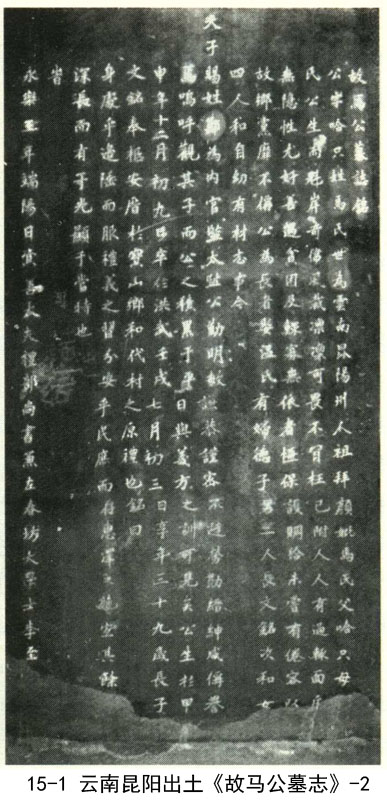 故馬公墓誌銘
公字哈只姓馬氏世為雲南昆陽州人祖拜顏妣馬氏父哈只母
氏公生而魁岸奇偉風裁凜凜可畏不肯枉己附人人有過輒面斥
無隱性尤好善遇貧困及鰥寡無依者恒保護賙給未嘗有倦容以
故鄉黨靡不稱公為長者娶溫氏有婦德子男二人長文銘次和女
四人和自幼有材志事今
天子賜姓鄭為內官監太監公勤明敏謙恭謹密不避勞勩縉紳咸稱譽
焉嗚呼觀其子而公之積累于平日與義方之訓可見矣公生於甲
申年十二月初九日卒於洪武壬戌七月初三日享年三十九歲長子
文銘奉柩安厝於寶山鄉和代村之原禮也銘曰
身處乎邊陲而服禮義之習分安乎民庶而存惠澤之施宜其餘
深長而有子光顯于當時也
時
永樂三年端陽日資善大夫禮部尚書兼左春坊大學士李至
15-1 云南昆阳出土《故马公墓志》-2